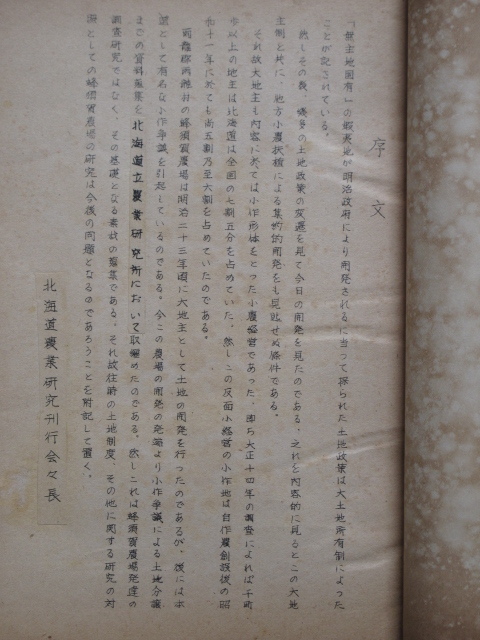 序文
「無主地国有」の蝦夷地が明治政府により開発されるに当って採られた土地政策は大土地所有制によった
ことが記されている。
然しその後、幾多の土地政策の変遷を見て今日の開発を見たのである、之れを内容的に見るとこの大地
主制と共に、地方小農状態による集約的開発をも見逃せぬ條件である。
それ故大地主も内容に於ては小作形体をとった小農経営であった、即ち大正十四年の調査によれば千町
歩以上の地主は北海道は全国の七割五分を占めていた、然しこの反面小経営の小作地は自作農創設後の昭
和十一年に於ても尚五割乃至六割を占めていたのである。
雨龍郡雨龍村の蜂須賀農場は明治二十三年頃に大地主として土地の開発を行ったのであるが、後には本
道として有名な小作争議を引起しているのである。今この農場の開発の発端より小作争議による土地分譲
までの資料蒐集を北海道立農業研究所において収纒めたのである。然しこれは蜂須賀農場発達の
調査研究ではなく、その基礎となる素材の蒐集である、それ故往時の土地制度、その他に関する研究の対
照としての蜂須賀農場の研究は今後の問題となるのであろうことを附記して置く。
北海道農業研究刊行会々長